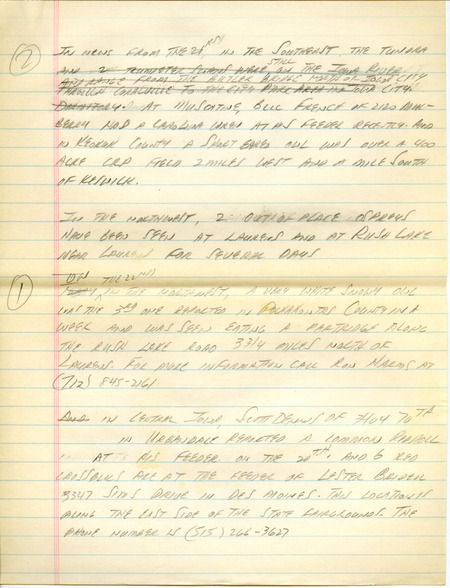 ② IN NEWS FROM THE 21ST, IN THE SOUTHEAST, THE TUNDRA
AND 2 TRUMPETER SWANS WERE STILL ON THE IOWA RIVER
AND RANGE FROM THE BUTLER BRIDGE NORTH OF IOWA CITY
THROUGH CORALVILLE TO THE CITY PARK AREA IN IOWA CITY.
AT MUSCATINE, BILL FRENCH OF 2120 MUL-
BERRY HAD A CAROLINA WREN AT HIS FEEDER RECENTLY. AND
IN KEOKUK COUNTY A SHORT EARED OWL WAS OVER A 400
ACRE CRP FIELD 2 MILES WEST AND A MILE SOUTH
OF KESWICK.
IN THE NORTHWEST, 2 OUT OF PLACE OSPREYS
HAVE BEEN SEEN AT LAURENS AND AT RUSH LAKE
NEAR LAURENS FOR SEVERAL DAYS
① ON THE 22ND, IN THE NORTHWEST, A VERY WHITE SNOWY OWL
WAS THE 3RD ONE REPORTED IN POCAHONTAS COUNTY IN A
WEEK AND WAS SEEN EATING A PARTRIDGE ALONG
THE RUSH LAKE ROAD 3 3/4 MILES NORTH OF
LAURENS. FOR MORE INFORMATION CALL RON HARMS AT
(712) 845-2161
AND IN CENTRAL IOWA, SCOTT DENNIS OF 7104 70TH
IN URBANDALE REPORTED A COMMON REDPOLL
AT HIS FEEDER ON THE 20TH, AND 6 RED
CROSSBILLS ARE AT THE FEEDER OF LESTER
3347 DRIVE IN DES MOINES. THIS LOCATION IS
ALONG THE EAST SIDE OF THE STATE FAIRGROUNDS. THE
PHONE NUMBER IS (515) 266-3627